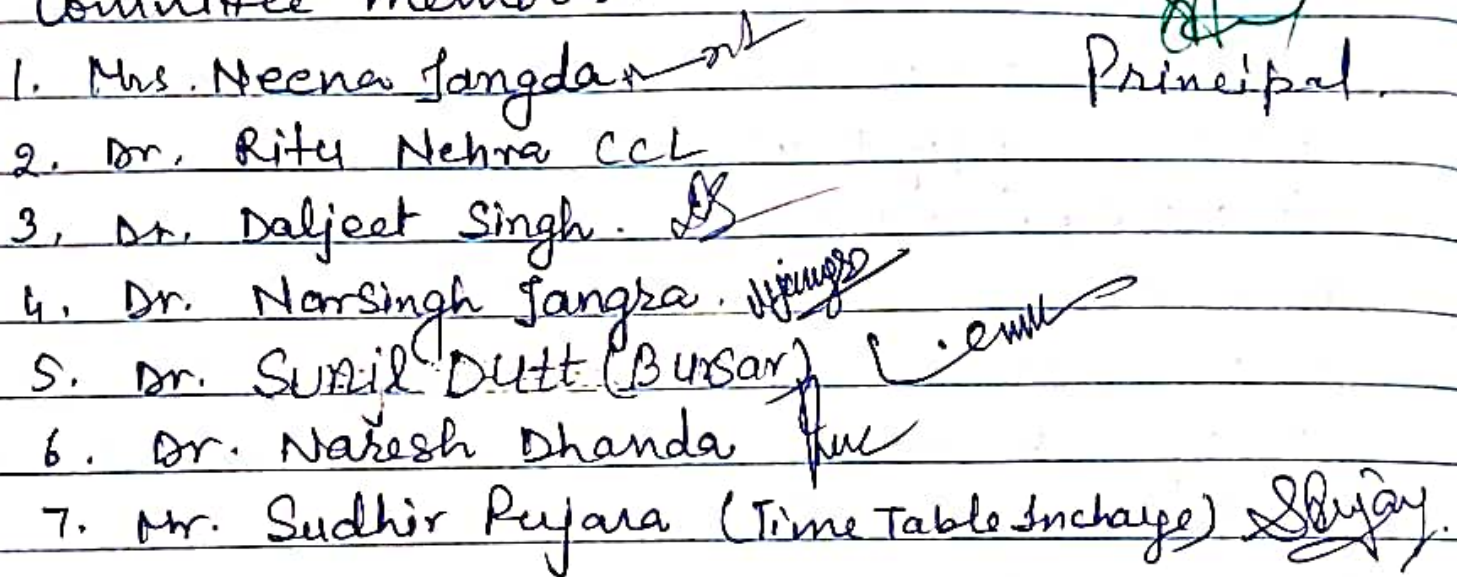 Committee Members
1. Mrs. Neena Jangda
Principal.
2. Dr. Ritu Nehra CCL
3. Dr. Daljeet Singh.
4. Dr. Narsingh Jangra.
5. Dr. Sunil Dutt (Bursar)
6. Dr. Naresh Dhanda
7. Mr. Sudhir Pujara (Time Table Incharge)